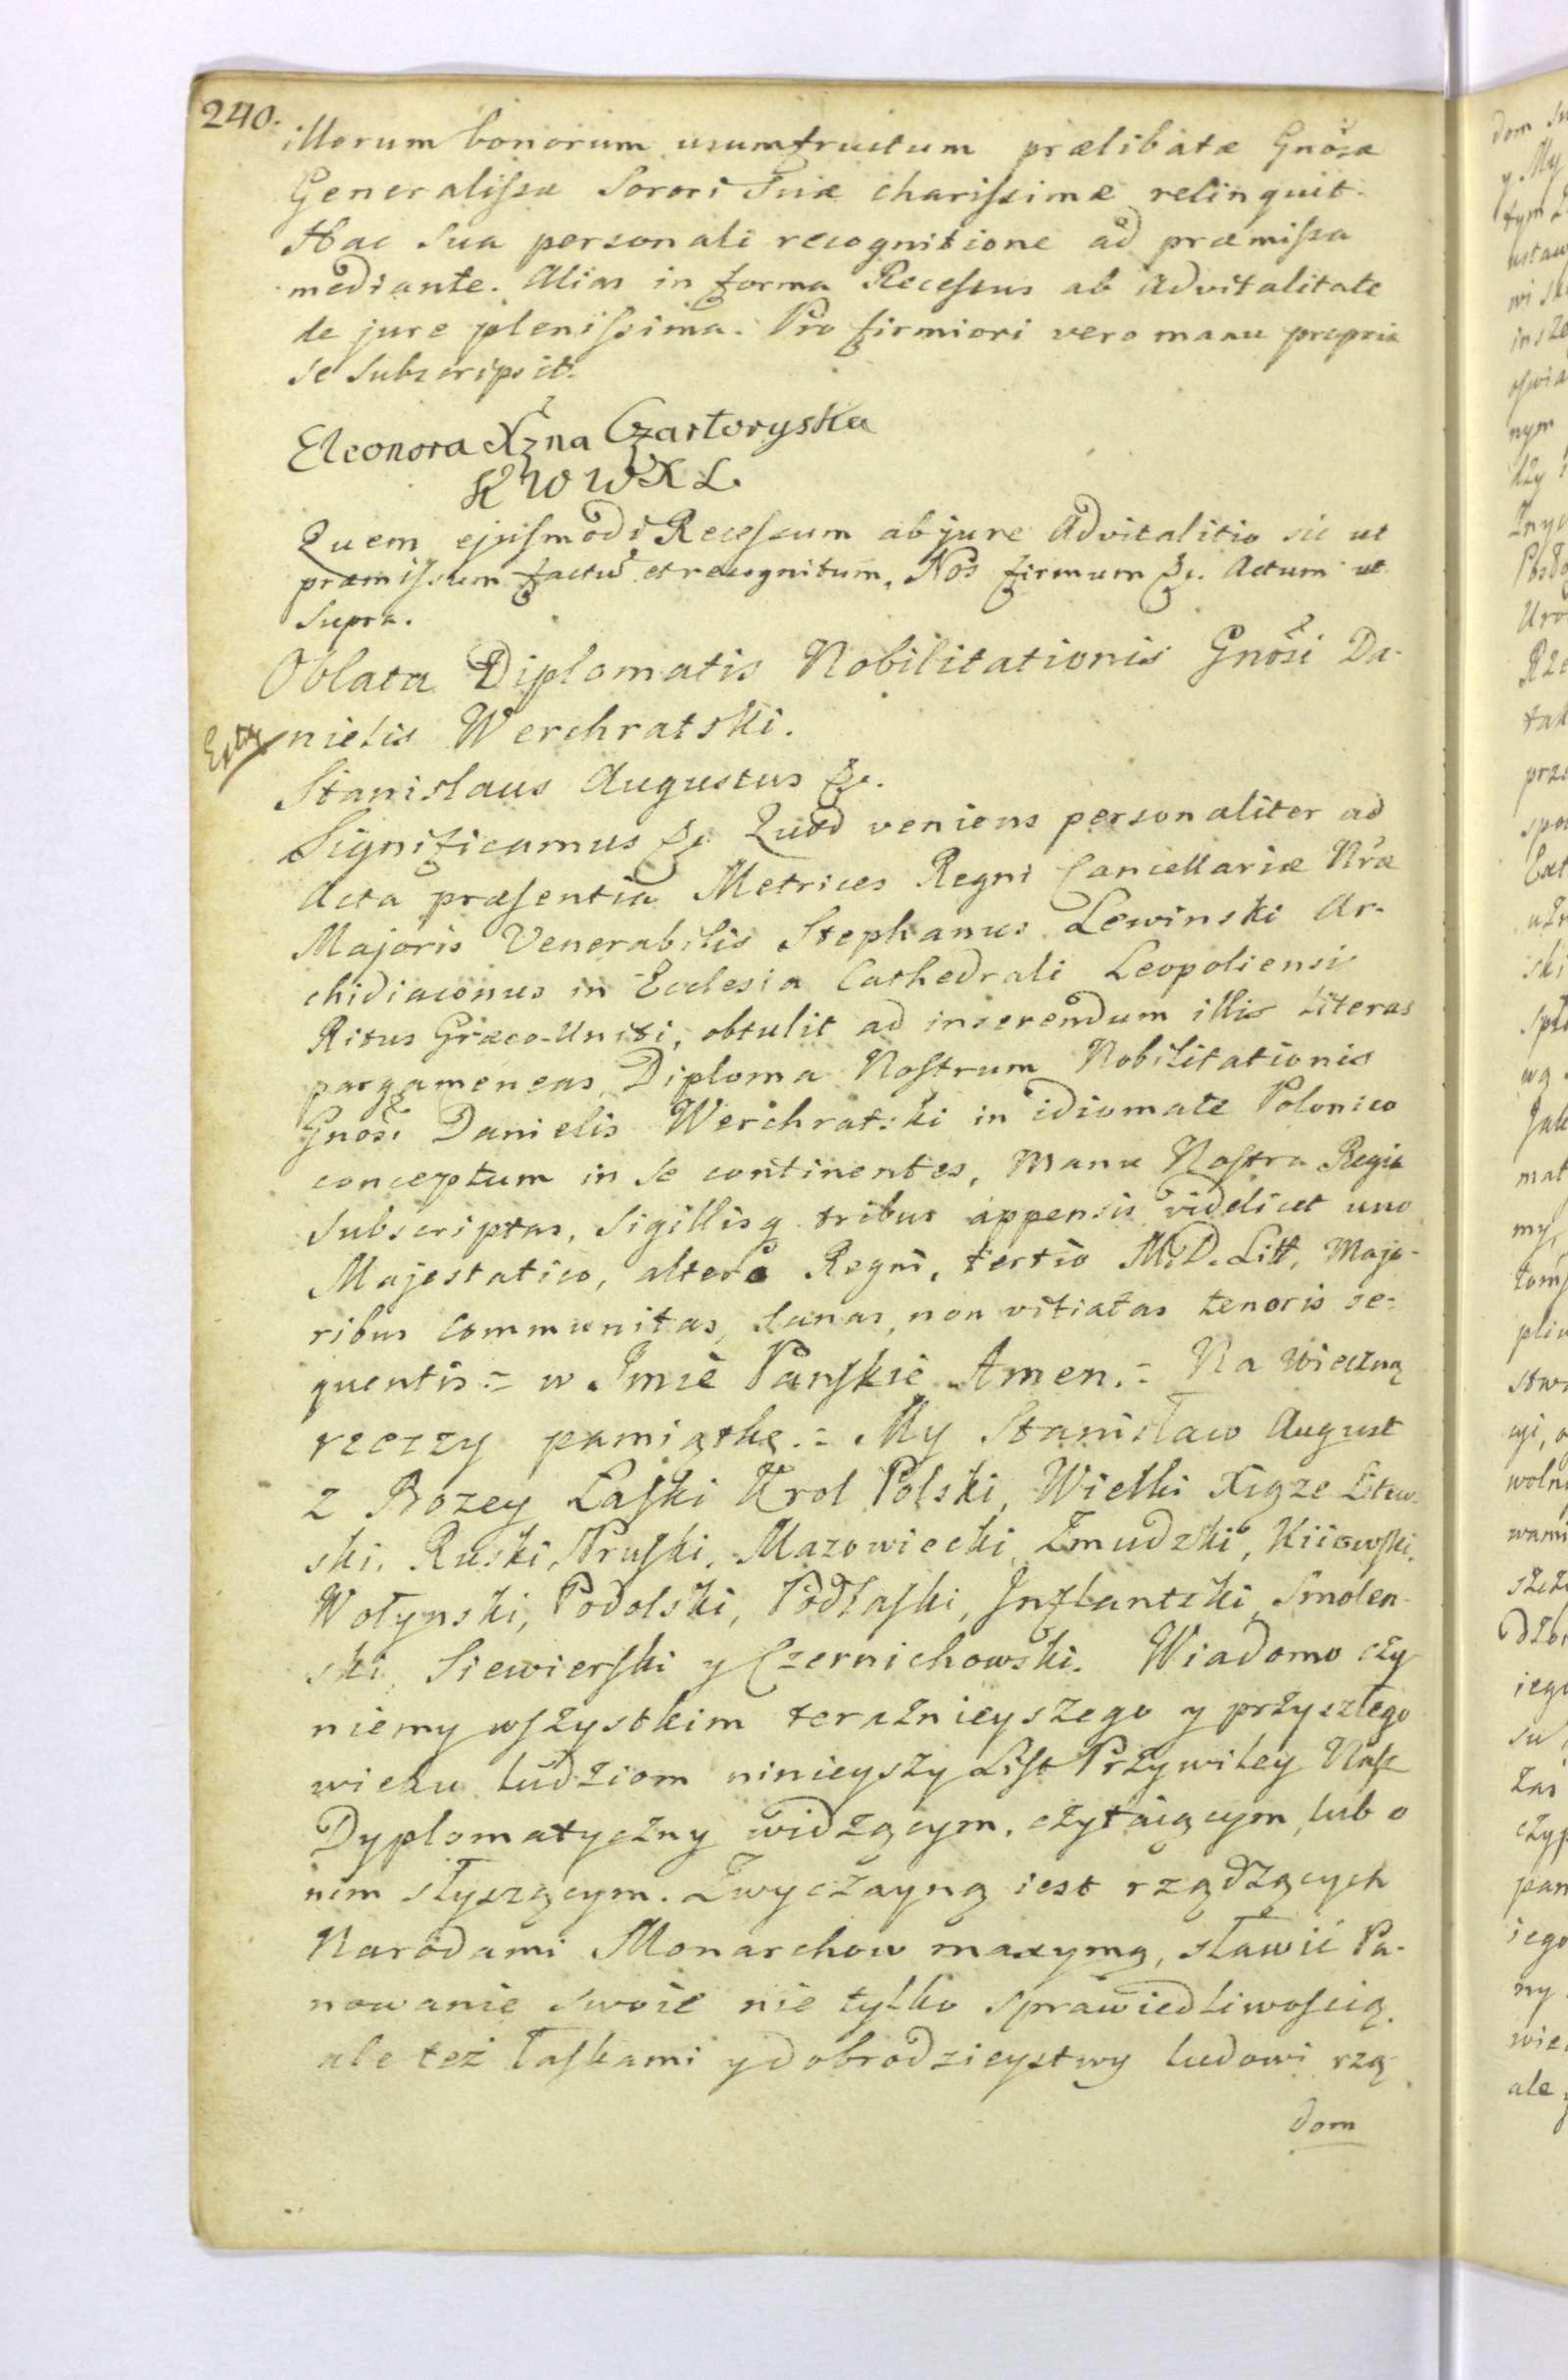 240.
illorum bonorum usumfructum prælibatæ Gnosæ
Generalissæ Sorori Suæ charissimæ relinquit.
Hac sua personali recognitione ad præmissa
mediante. Alias in forma Recessus ab advitalitate
de jure plenissima. Pro firmiori vero manu propria
se subscripsit.
Eleonora Xżna Czartoryska
K W W X L.
Quem ejusmodi Recessum ab jure advitalitio sic ut
præmissum factū et recognitum, Nos firmum &c. Actum ut
Supra.
Oblata Diplomatis Nobilitationis Gnosi Da-
nielis Werchratski.
Stanislaus Augustus &c.
Significamus &c. Quod veniens personaliter ad
Acta præsentia Metrices Regni Cancellariæ Nræ
Majoris Venerabilis Stephanus Lewinski Ar-
chidiaconus in Ecclesia Cathedrali Leopoliensis
Ritus Græco-Uniti, obtulit ad inserendum illis Literas
pargameneas, Diploma Nostrum Nobilitationis
Gnosi Danielis Werchratski in idiomate Polonico
conceptum in se continentes, Manu Nostra Regia
subscriptas, Sigillisq tribus appensis videlicet uno
Majestatico, altero Regni, tertio M.D. Litt, Majo-
ribus communitas, sanas, non vitiatas tenoris se-
quentis = w Imie Panskie Amen. = Na wieczną
rzeczy pamiątkę. = My Stanisław August
z Bozey Łaski Krol Polski, Wielki Xiąze Litew-
ski, Ruski, Pruski, Mazowiecki, Zmudzki, Kiiowski,
Wołynski, Podolski, Podlaski, Inflantski, Smolen-
ski, Siewierski y Czernichowski. Wiadomo czy
niemy wszystkim teraznieyszego y przyszłego
wieku ludziom ninieyszy List Przywiley Nasz
Dyplomatyczny widzącym, czytaiącym, lub o
nim słyszącym. Zwyczayną iest rządzących
Narodami Monarchow maxymą, sławić Pa-
nowanie swoie nie tylko sprawiedliwoscią,
ale też łaskami y dobrodzieystwy ludowi rzą
dom